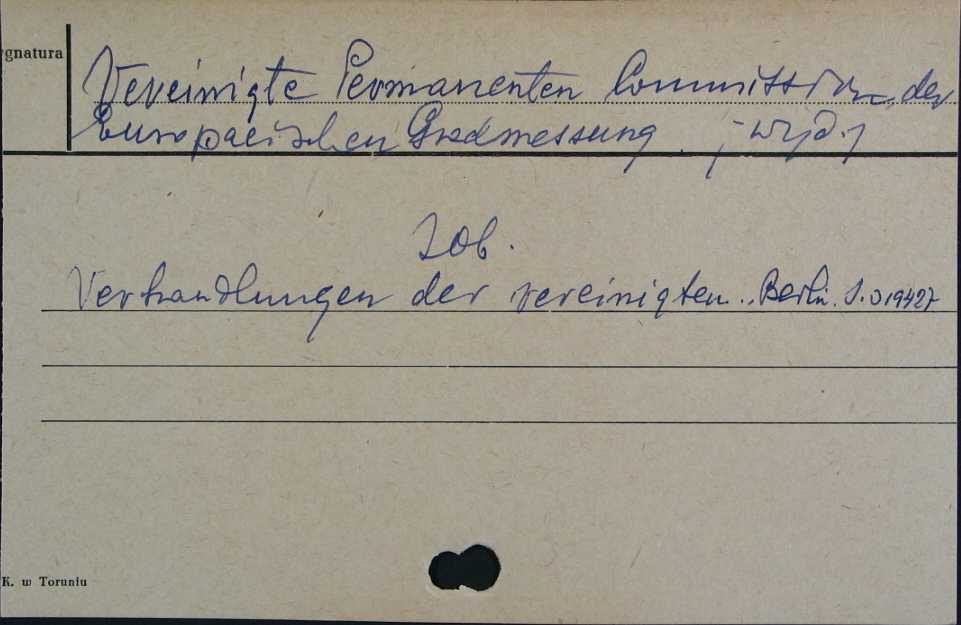 ygnatura
Vereinigte Permanenten Commission der
Europaeischen Gradmessung ; - wyd.
Zob.
Verhandlungen der vereinigten.. Berlin. S. 019427
K. w Toruniu